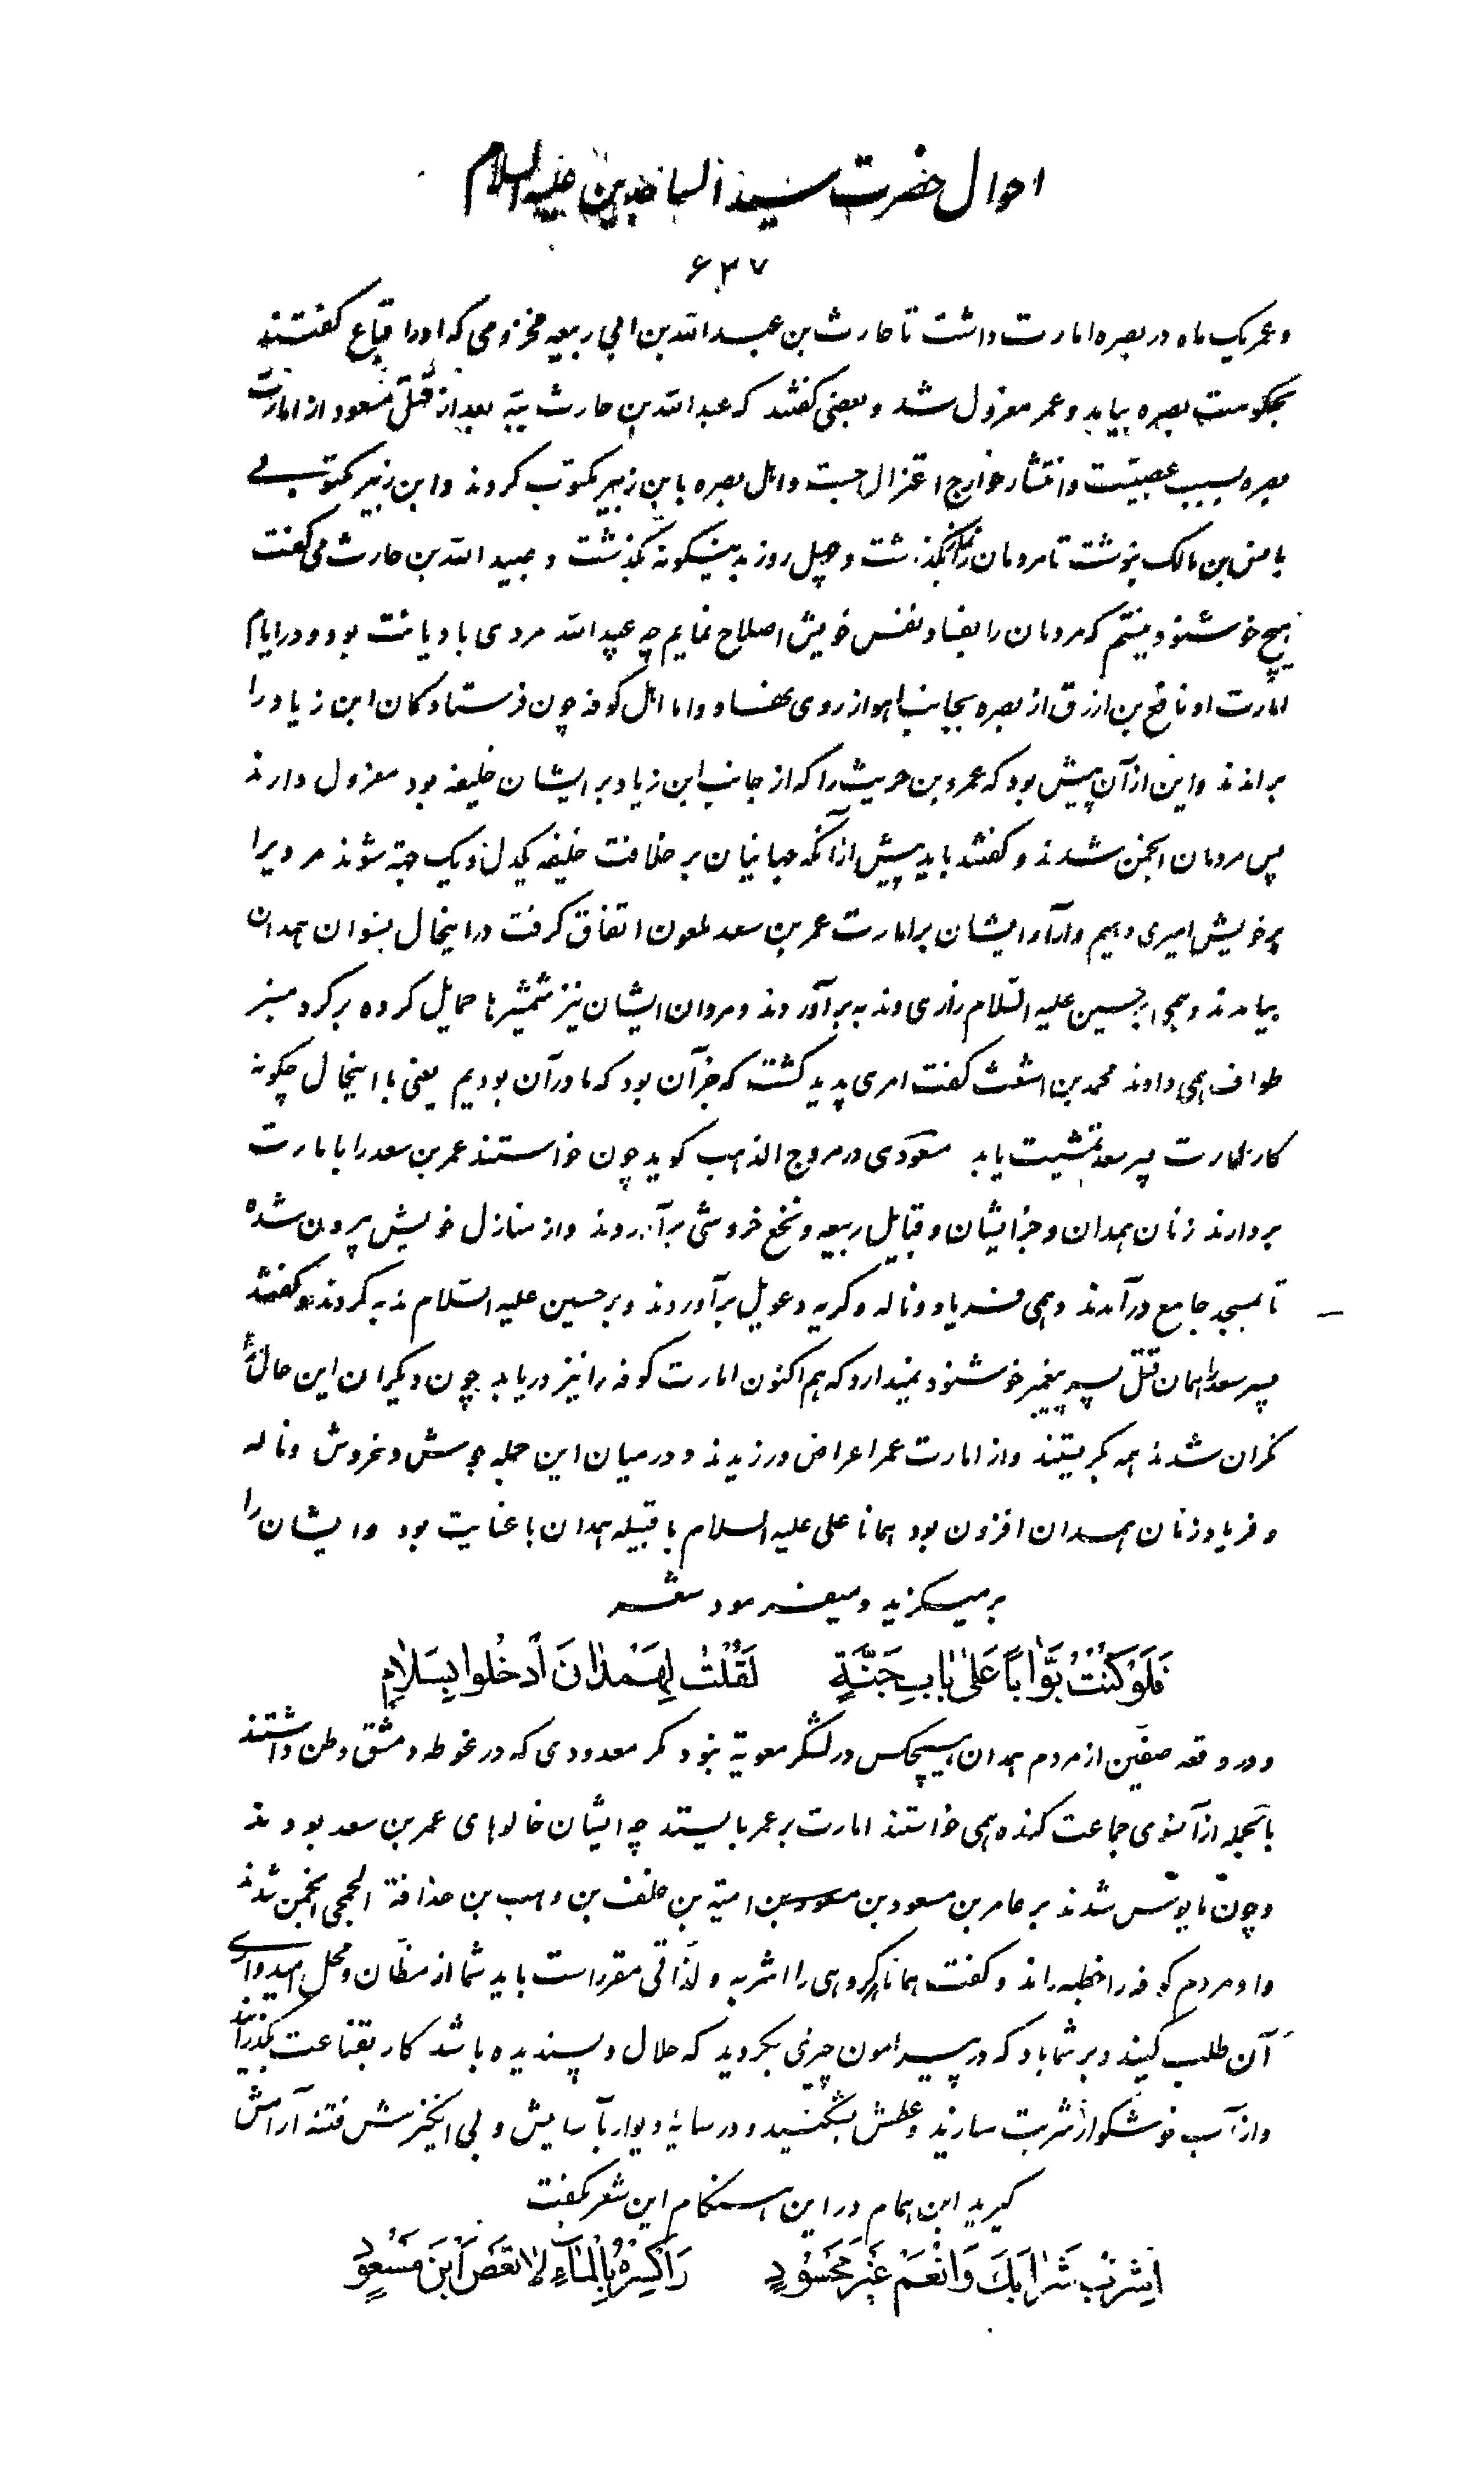 احوال حضرت سید الساجدین علیه السلام
۶۳۷
و عمر یک ماه در بصره امارت داشت تا حارث بن عبد الله بن ابی ربیعه مخزومی که او را قباع گفتند
بحکومت بصره بیاید و عمر معزول شد و بعضی گفتند که عبد الله بن حارث ببّه بعد از قتل مسعود از امارت
بصره بسبب عصبیّت و انتشار خوارج اعتزال جست و اهل بصره بابن زبیر مکتوب کردند و ابن زبیر مکتوبی
بانس بن مالک بنوشت تا مردمان را نماز بگذاشت و چهل روز بدینگونه بگذشت و عبید الله بن حارث می گفت
هیچ خوشنود نیستم که مردمان را بفساد نفس خویش اصلاح نمایم چه عبد الله مردی بادیانت بود و در ایام
امارت او نافع بن ازرق از بصره بجانب اهواز روی نهاد و اما اهل کوفه چون فرستادکان ابن زیاد را
براندند و این از آن پیش بود که عمرو بن حریث را که از جانب ابن زیاد بر ایشان خلیفه بود معزول دارند
پس مردمان انجمن شدند و کفتند باید پیش از آنکه جهانیان بر خلافت خلیفه یکدل و یک جهة شوند مردیرا
بر خویش امیری دهیم و آراء ایشان بر امارت عمر بن سعد ملعون اتفاق کرفت در اینحال نسوان همدان
بیامدند و همی بر حسین علیه السّلام زاری و ندبه برآوردند و مردان ایشان نیز شمشیرها حمایل کرده بر کرد منبر
طواف همی دادند محمد بن اشعث کفت امری پدید کشت که جز آن بود که ما در آن بودیم یعنی با اینحال چکونه
کار امارت پسر سعد تمشیت یابد مسعودی در مروج الذهب کوید چون خواستند عمر بن سعد را بامارت
بردارند زنان همدان و جز ایشان و قبایل ربیعه و نخع خروشی برآوردند و از منازل خویش بیرون شده
تا بمسجد جامع درآمدند و همی فریاد و ناله و کریه و عویل برآوردند و بر حسین علیه السّلام ندبه کردند و کفتند
پسر سعد را همان قتل پسر پیغمبر خوشنود نمیدارد که هم اکنون امارت کوفه را نیز دریابد چون دیکران این حال را
نکران شدند همه بکریستند و از امارت عمر اعراض ورزیدند و در میان این جمله جوشش و خروش و ناله
و فریاد زنان همدان افزون بود همانا علی علیه السلام با قبیله همدان با عنایت بود و ایشان را
برمیکزید و میفرمود شعر
فَلَوْ كُنْتُ بَوّٰاباً عَلىٰ بٰابِ جَنَّةٍ لَقُلْتُ لِهَمْدٰانَ ادْخُلُوا بِسَلاٰمِ
و در وقعه صفین از مردم همدان هیچکس در لشکر معویة نبود مکر معدودی که در غوطه دمشق وطن داشتند
بالجمله از آنسوی جماعت کنده همی خواستند امارت بر عمر بایستد چه ایشان خالوهای عمر بن سعد بودند
و چون مایوس شدند بر عامر بن مسعود بن امیّة بن خلف بن وهب بن حذافة الجمحی انجمن شدند
و او مردم کوفه را خطبه راند و کفت همانا هر کروهی را اشربه و لذّاتی مقرر است باید شما از مظان و محل امیدواری
آن طلب کنید و بر شما باد که در پیرامون چیزی بکردید که حلال و پسندیده باشد کار بقناعت بکذرانید
و از آب خوشکوار شربت سازید و عطش بشکنید و در سایهٔ دیوار بآسایش و بی انکیزش فتنه آرامش
کیرید ابن همام در این هنکام این شعر بکفت
اِشْرَبْ شَرٰابَكَ وَانْعَمْ غَيْرَ مَحْسُودٍ وَاكْسِرْهُ بِالْمٰاءِ لاٰ تَعْصِ ابْنَ مَسْعُودٍ